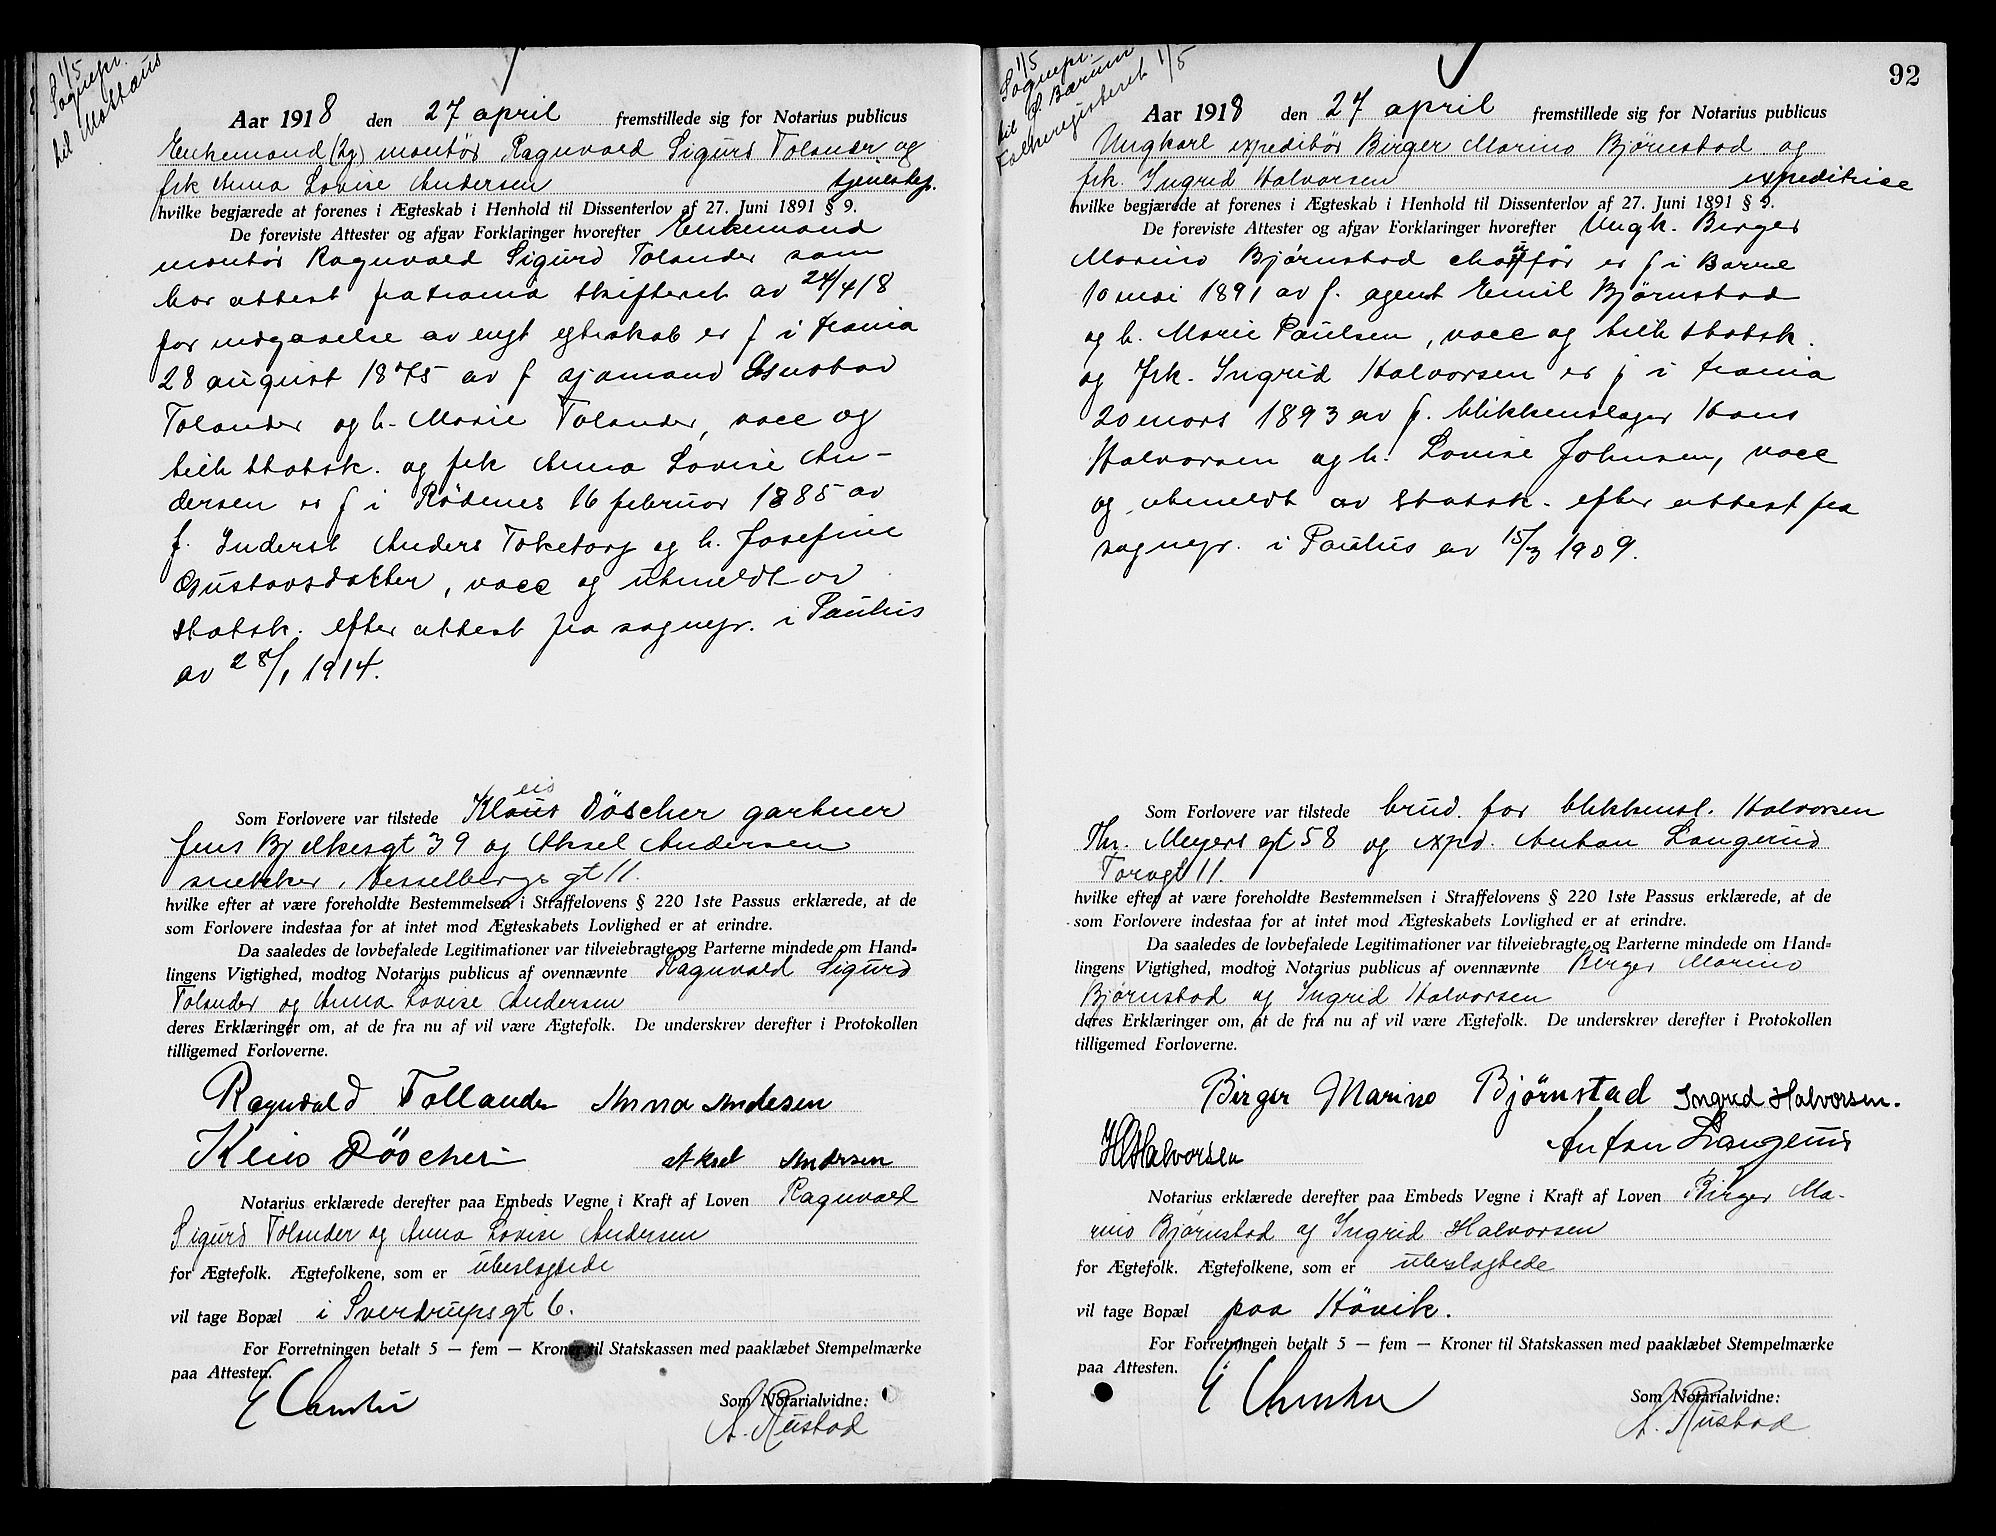 1/5
Sognepr.
til Matthæus
Aar 1918 den 27 april fremstillede sig for Notarius publicus
Enkemand (2g) montör Ragnvald Sigurd Tolander og
frk Anna Lovise Andersen tjenestep.
hvilke begjærede at forenes i Ægteskab i Henhold til Dissenterlov af 27. Juni 1891 § 9.
De foreviste Attester og afgav Forklaringer hvorefter Enkemand
montör Ragnvald Sigurd Tolander som
har attest fra Kra̅nia skifteret av 24/4 18
for indgaaelse av nyt egteskab er f i
28 august 1875 av f sjömand Gustav
Tolander og h. Marie Tolander, vacc og
tilh statsk. og frk Anna Lovise An-
dersen er f i Rödenes 16 februar 1885 av
f. Inderst Anders Toketorp og h. Josefine
Gustavsdatter, vacc og utmeldt av
statsk. efter attest fra sognepr. i Paulus
av 28/1 1914.
Som Forlovere var tilstede Klaus eio Döscher gartner
Jens Bjelkesgt 39 og Aksel Andersen
snekker, Hesselbergs gt 11.
hvilke efter at være foreholdte Bestemmelsen i Straffelovens § 220 1ste Passus erklærede, at de
som Forlovere indestaa for at intet mod Ægteskabets Lovlighed er at erindre.
Da saaledes de lovbefalede Legitimationer var tilveiebragte og Parterne mindede om Hand-
lingens Vigtighed, modtog Notarius publicus af ovennævnte Ragnvald Sigurd
Tolander og Anna Lovise Andersen
deres Erklæringer om, at de fra nu af vil være Ægtefolk. De underskrev derefter i Protokollen
tilligemed Forloverne.
Ragnvald Tollander Anna Andesen
Döscher Aksel Andersen
Notarius erklærede derefter paa Embeds Vegne i Kraft af Loven Ragnvald
Sigurd Tolander og Anna Lovise Andersen
for Ægtefolk. Ægtefolkene, som er ubeslagtede
vil tage Bopæl i Sverdrupsgt 6.
For Forretningen betalt 5 — fem — Kroner til Statskassen med paaklæbet Stempelmærke
paa Attesten.
Som Notarialvidne:
A. Rustad
92
1/5
Sognepr.
til Ø. Bærum
Folkeregisteret 1/5
Aar 1918 den 27 april fremstillede sig for Notarius publicus
Ungkarl expeditör Birger Marino Björnstad og
frk. Ingrid Halvorsen expeditrice
hvilke begjærede at forenes i Ægteskab i Henhold til Dissenterlov af 27. Juni 1891 § 9.
De foreviste Attester og afgav Forklaringer hvorefter Ungk. Birger
Marino Björnstad chauffør er f i Borre
10 mai 1891 av f. agent Emil Björnstad
og h. Marie Paulsen, vacc og tilh statsk.
og frk. Ingrid Halvorsen er f i
20 mars 1893 av f. blikkenslager Hans
Halvorsen og h. Lovise Johnsen, vacc
og utmeldt av statsk. efter attest fra
sognepr. i Paulus av 15/3 1909.
Som Forlovere var tilstede brud. far blikkensl. Halvorsen
Thv. Meyers gt 58 og expd. Anton Langerud
Torvgt 11.
hvilke efter at være foreholdte Bestemmelsen i Straffelovens § 220 1ste Passus erklærede, at de
som Forlovere indestaa for at intet mod Ægteskabets Lovlighed er at erindre.
Da saaledes de lovbefalede Legitimationer var tilveiebragte og Parterne mindede om Hand-
lingens Vigtighed, modtog Notarius publicus af ovennævnte Birger Marino
Björnstad og Ingrid Halvorsen
deres Erklæringer om, at de fra nu af vil være Ægtefolk. De underskrev derefter i Protokollen
tilligemed Forloverne.
Birger Marino Björnstad Ingrid Halvorsen.
H Halvorsen Anton Langerud
Notarius erklærede derefter paa Embeds Vegne i Kraft af Loven Birger Ma-
rino Björnstad og Ingrid Halvorsen
for Ægtefolk. Ægtefolkene, som er ubeslagtede
vil tage Bopæl paa Hövik.
For Forretningen betalt 5 — fem — Kroner til Statskassen med paaklæbet Stempelmærke
paa Attesten.
Som Notarialvidne:
A. Rustad